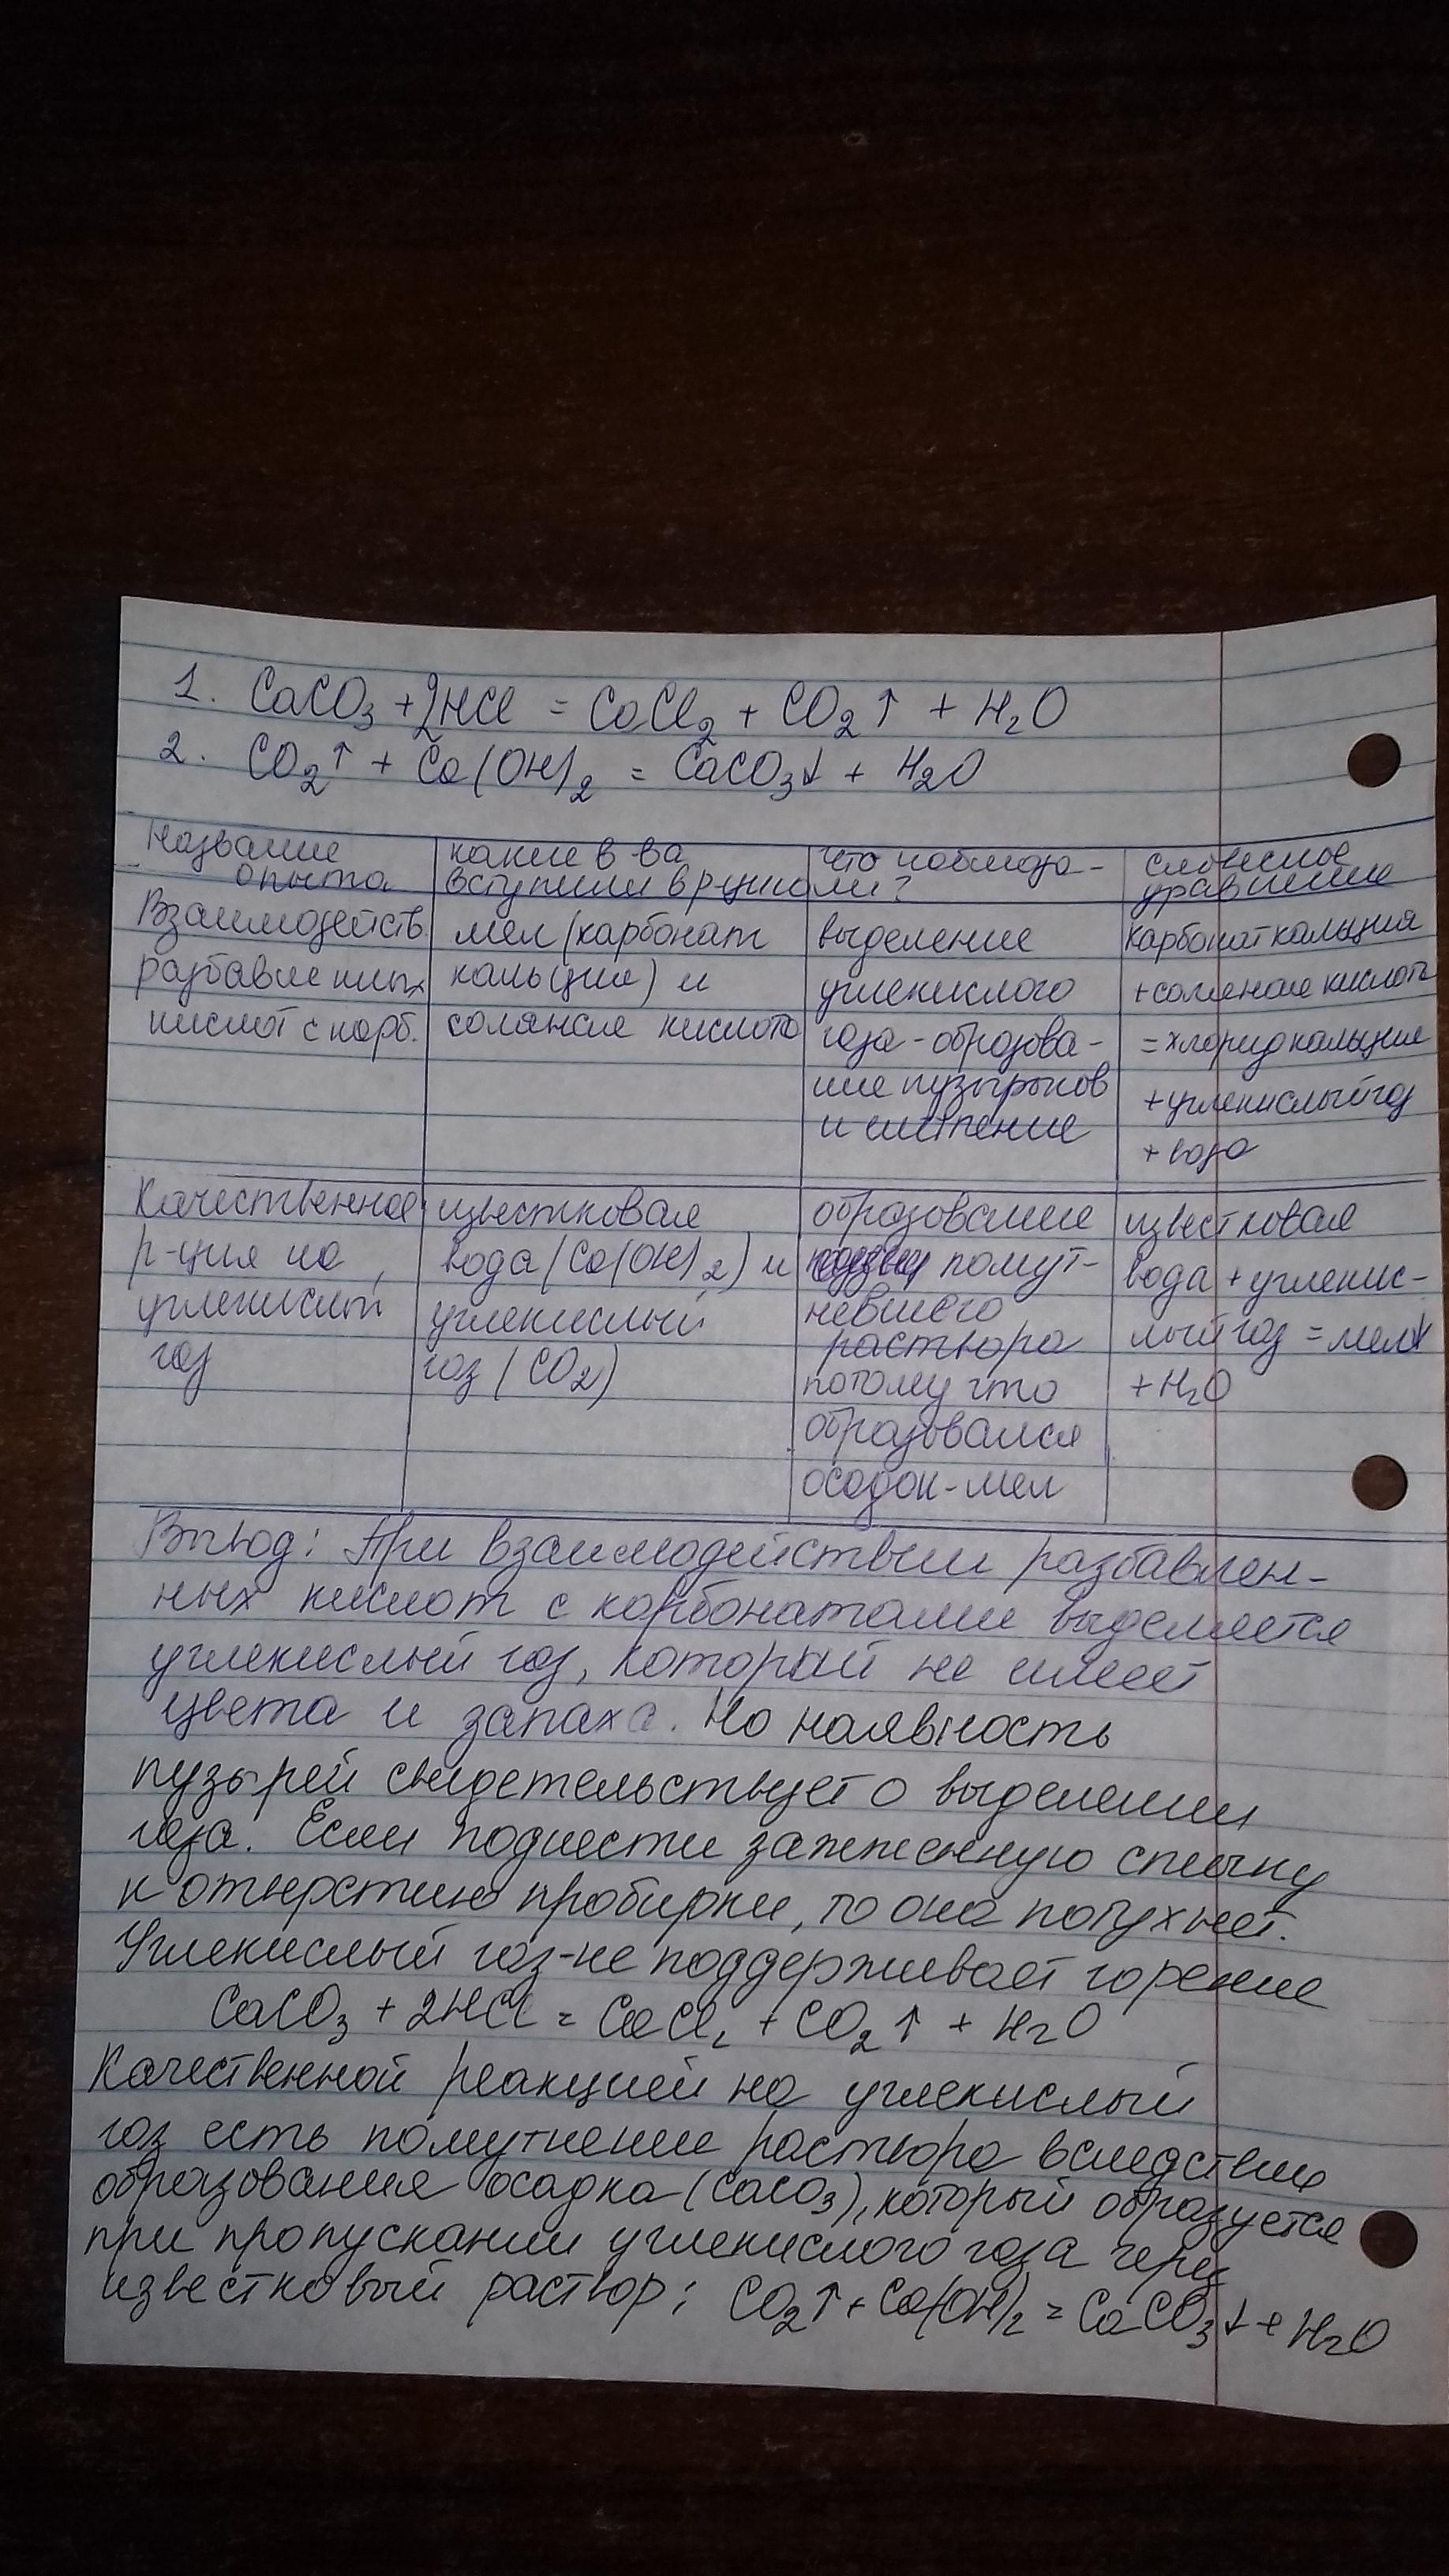 1. CaCO3 + 2HCl = CaCl2 + CO2↑ + H2O
2. CO2↑ + Ca(OH)2 = CaCO3↓ + H2O
Название опыта
какие в-ва вступили в р-цию
что наблюда-
ли?
словесное
уравнение
Взаимодейств.
разбавленных
кислот с карб.
мел (карбонат
кальция) и
соляная кислота
выделение
углекислого
газа - образова-
ние пузырьков
и шипение
карбонат кальция
+ соляная кислота
= хлорид кальция
+ углекислый газ
+ вода
Качественная
р-ция на
углекислый
газ
известковая
вода (Ca(OH)2) и
углекислый
газ (CO2)
образование
помут-
невшего
раствора
потому что
образовался
осадок - мел
известковая
вода + углекис-
лый газ = мел↓
+ H2O
Вывод: При взаимодействии разбавлен-
ных кислот с карбонатами выделяется
углекислый газ, который не имеет
цвета и запаха. Но наявность
пузырей свидетельствует о выделении
газа. Если поднести зажженную спичку
к отверстию пробирки, то она потухнет.
Углекислый газ - не поддерживает горение
CaCO3 + 2HCl = CaCl2 + CO2↑ + H2O
Качественной реакцией на углекислый
газ есть помутнение раствора вследствие
образования осадка (CaCO3), который образуется
при пропускании углекислого газа через
известковый раствор: CO2↑ + Ca(OH)2 = CaCO3↓ + H2O